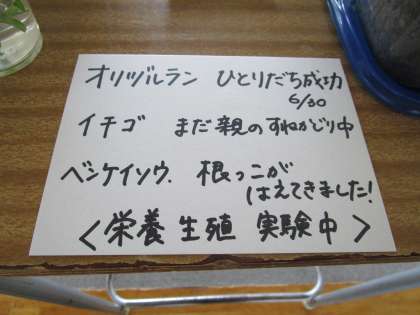 オリヅルラン ひとりだち成功
6/30
イチゴ まだ親のすねかじり中
ベンケイソウ. 根っこが
はえてきました!
<栄養生殖 実験中>